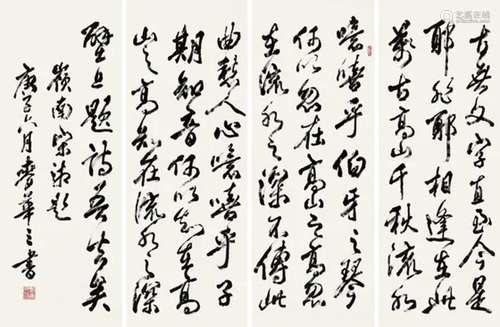 古無文字直至今是
耶非耶相逢在此
萬古高山千秋流水
噫嘻乎伯牙之琴
何以忽在高山之高忽
在流水之深不傳此
曲愁人心噫嘻乎子
期知音何以知在高
山之高知在流水之深
壁上題詩吾去矣
嶺南宋湘題
庚子六月華之書